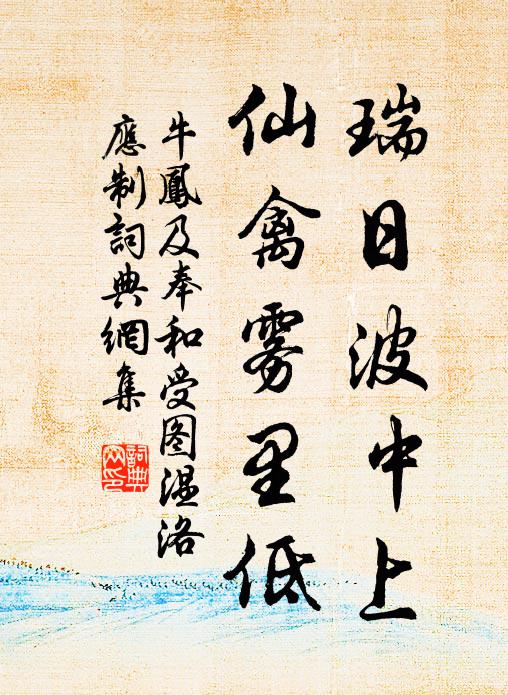 瑞日波中上
仙禽雾里低
牛鳳及奉和受图温洛
應制詞典網集
詞典
网印